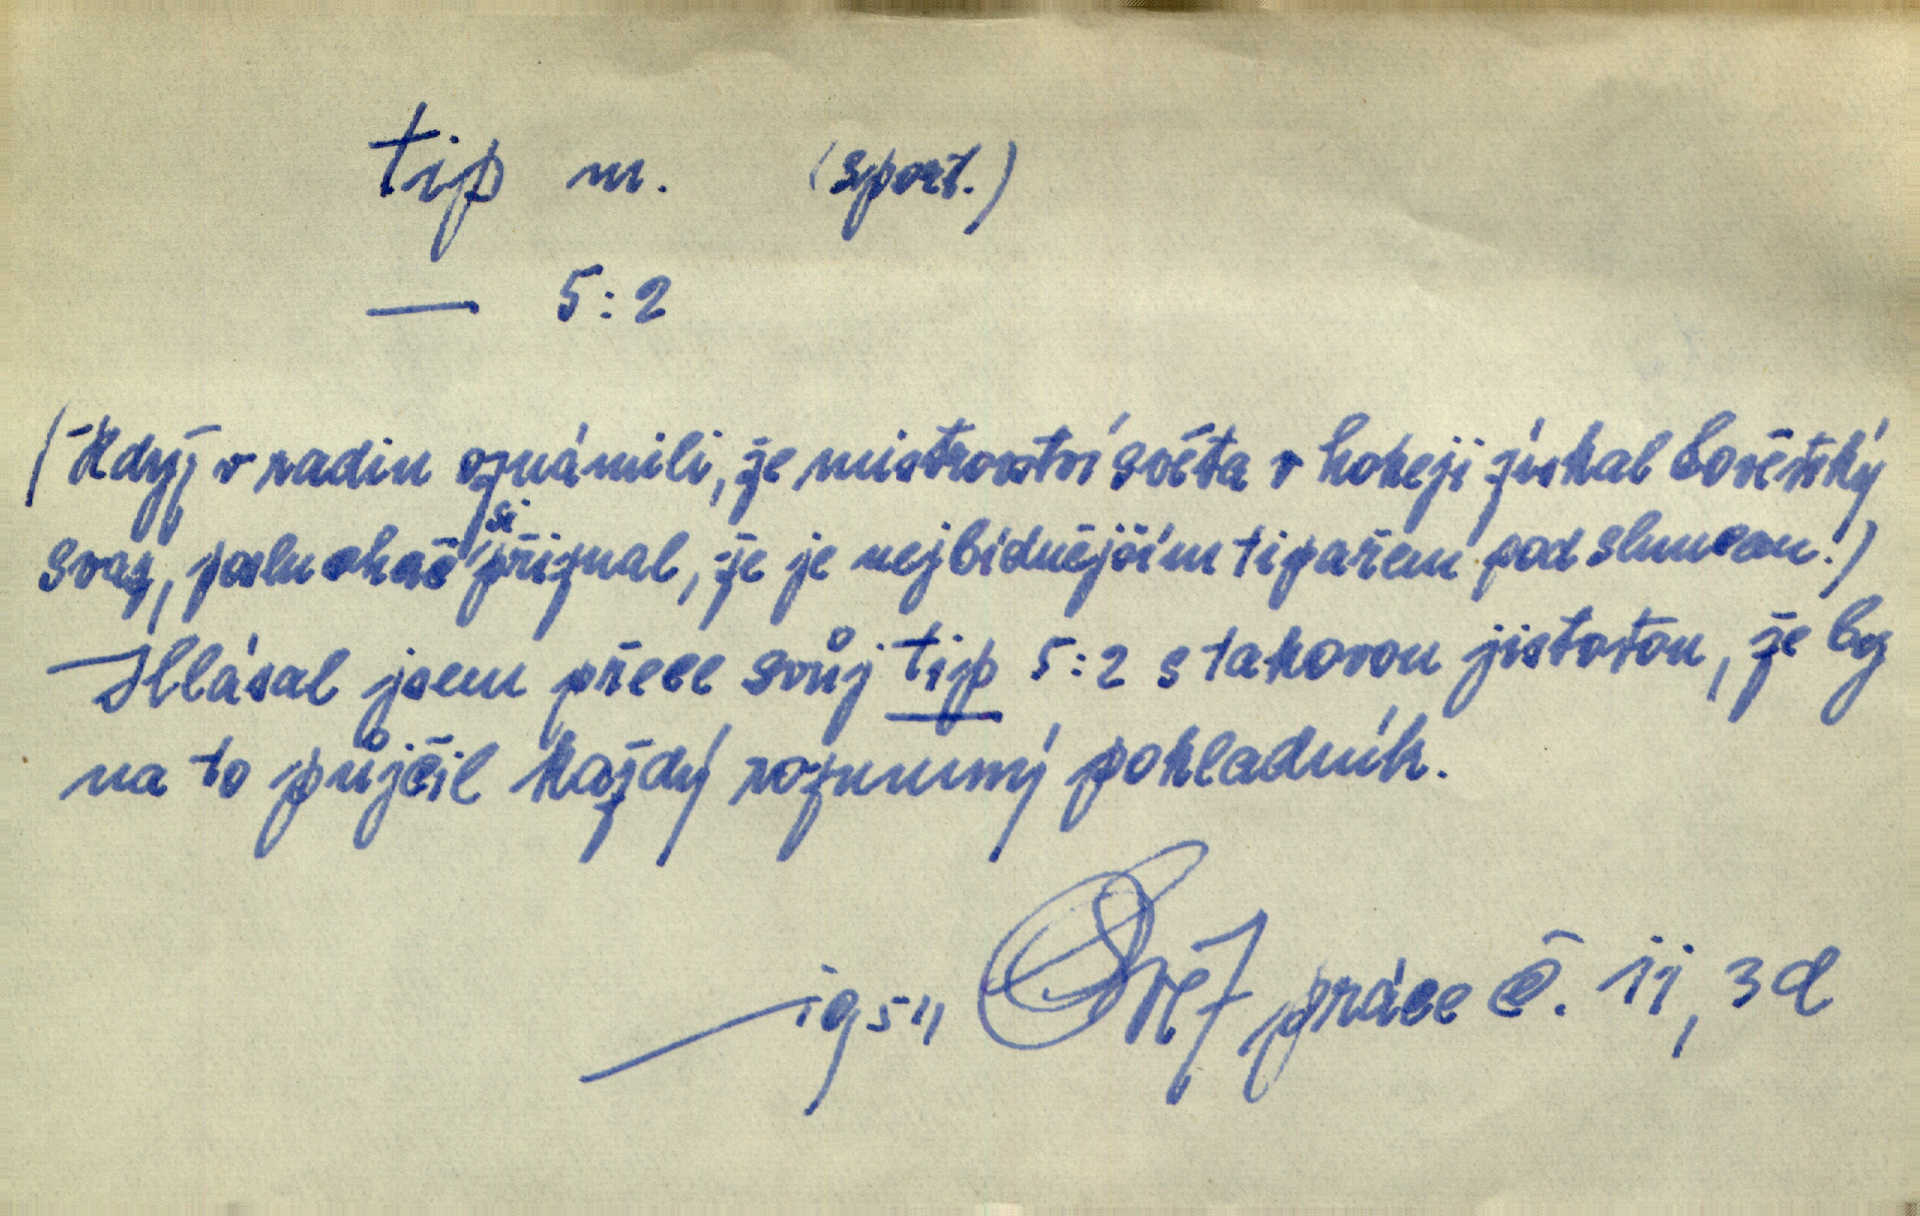 tip m. (sport.)
— 5:2
(Když v radiu oznámili, že mistrovství světa v hokeji získal Sovětský
svaz, posluchač si přiznal, že je nejbídnějším tipařem pod sluncem.)
Hlásal jsem přece svůj tip 5:2 s takovou jistotou, že by
na to půjčil každý rozumný pokladník.
1954, Svět práce č. 11, 3d